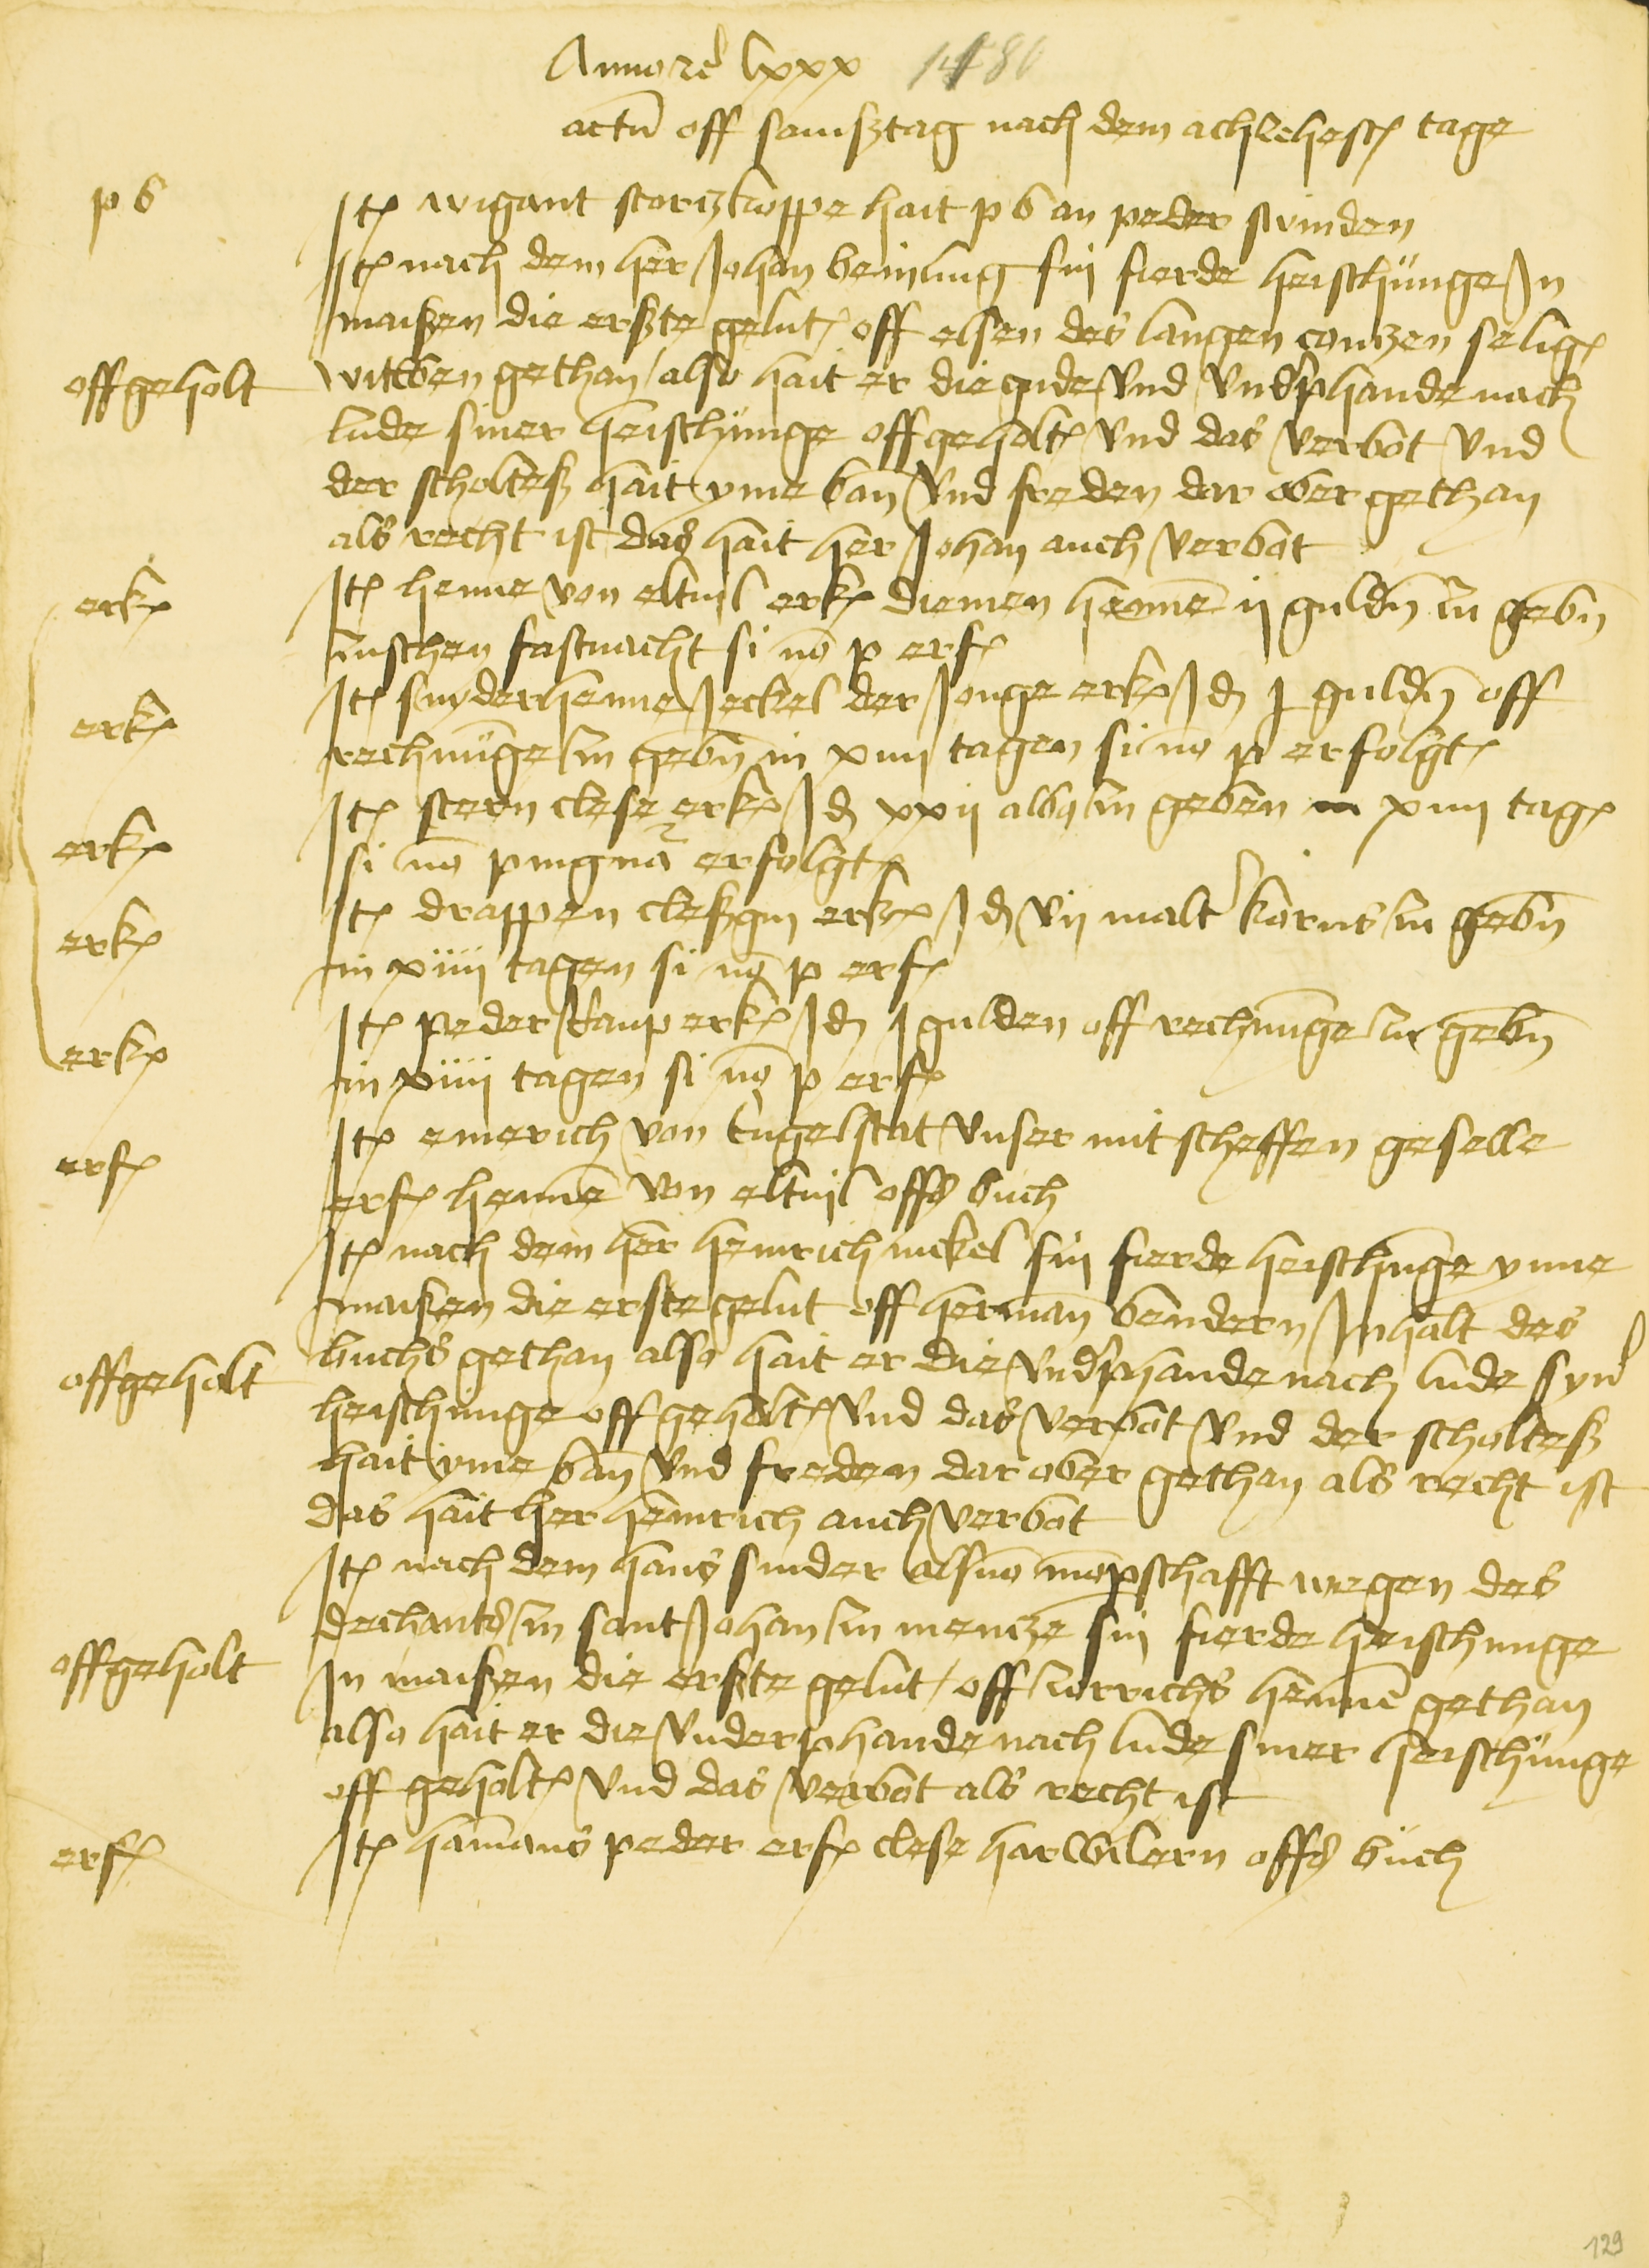 Anno rc lxxx 1480
actu off samßtag nach dem achzehesten tage
p b Itē wigant storczkoppe hait p b an peder swinden
Itē nach dem her Johan beinling sin fierde heischunge In
maißen die erßte gelutē off elsen des langen contzen seligē
offgeholt witwen gethan / also hait er die gude vnd vndphande nach
lude siner heischunge offgeholtē vnd das verbot vnd
der scholteß hait yme ban vnd freden dar ober gethan
als recht ist das hait her Johan auch verbot
erkē Itē henne von eltuil erkē diemen henne ij guldn zu gebn
zuschen fastnacht si no p erfē
erkē Itē snyderhenne Jeckel der Jonge erkē Id j guldn off
rechnunge zu gebn in xiiij tagen si no p erfolgtē
erkē Itē stern clese erkē Id xxij albꝯ zu geben in xiiij tagē
si no pingnā erfolgtē
erkē Itē drappen cleßgin erkē Id vij malt korns zu gebn
in xiiij tagen si no p erfē
erkē Itē peder kaup erkē Id j gulden off rechnunge zu gebn
in xiiij tagen si no p erfē
erfē Itē emerich von engelstat vnser mit scheffen geselle
erfē henne von eltuil offß buch
Itē nach dem her heinrich nickel sin fierde heischunge ynne
maißen die erste gelut off herman bendern Inhalt des
offgeholt buchs gethan also hait er die vndphande nach lude syner
heischunge offgeholtē vnd das verbot vnd der scholteß
hait yme ban vnd freden dar ober gethan als recht ist
das hait her heinrich auch verbot
Itē nach dem hans snider als mo mopschafft wegen des
dechants zu sant Johan zu mencze sin fierde heischunge
offgeholt In maißen die erßte gelut / off henne gethan
also hait er die vnderphande nach lude siner heischunge
off geholtē vnd das verbot als recht ist
erfē Itē hamans peder erfē clese harwilern offß buch
129